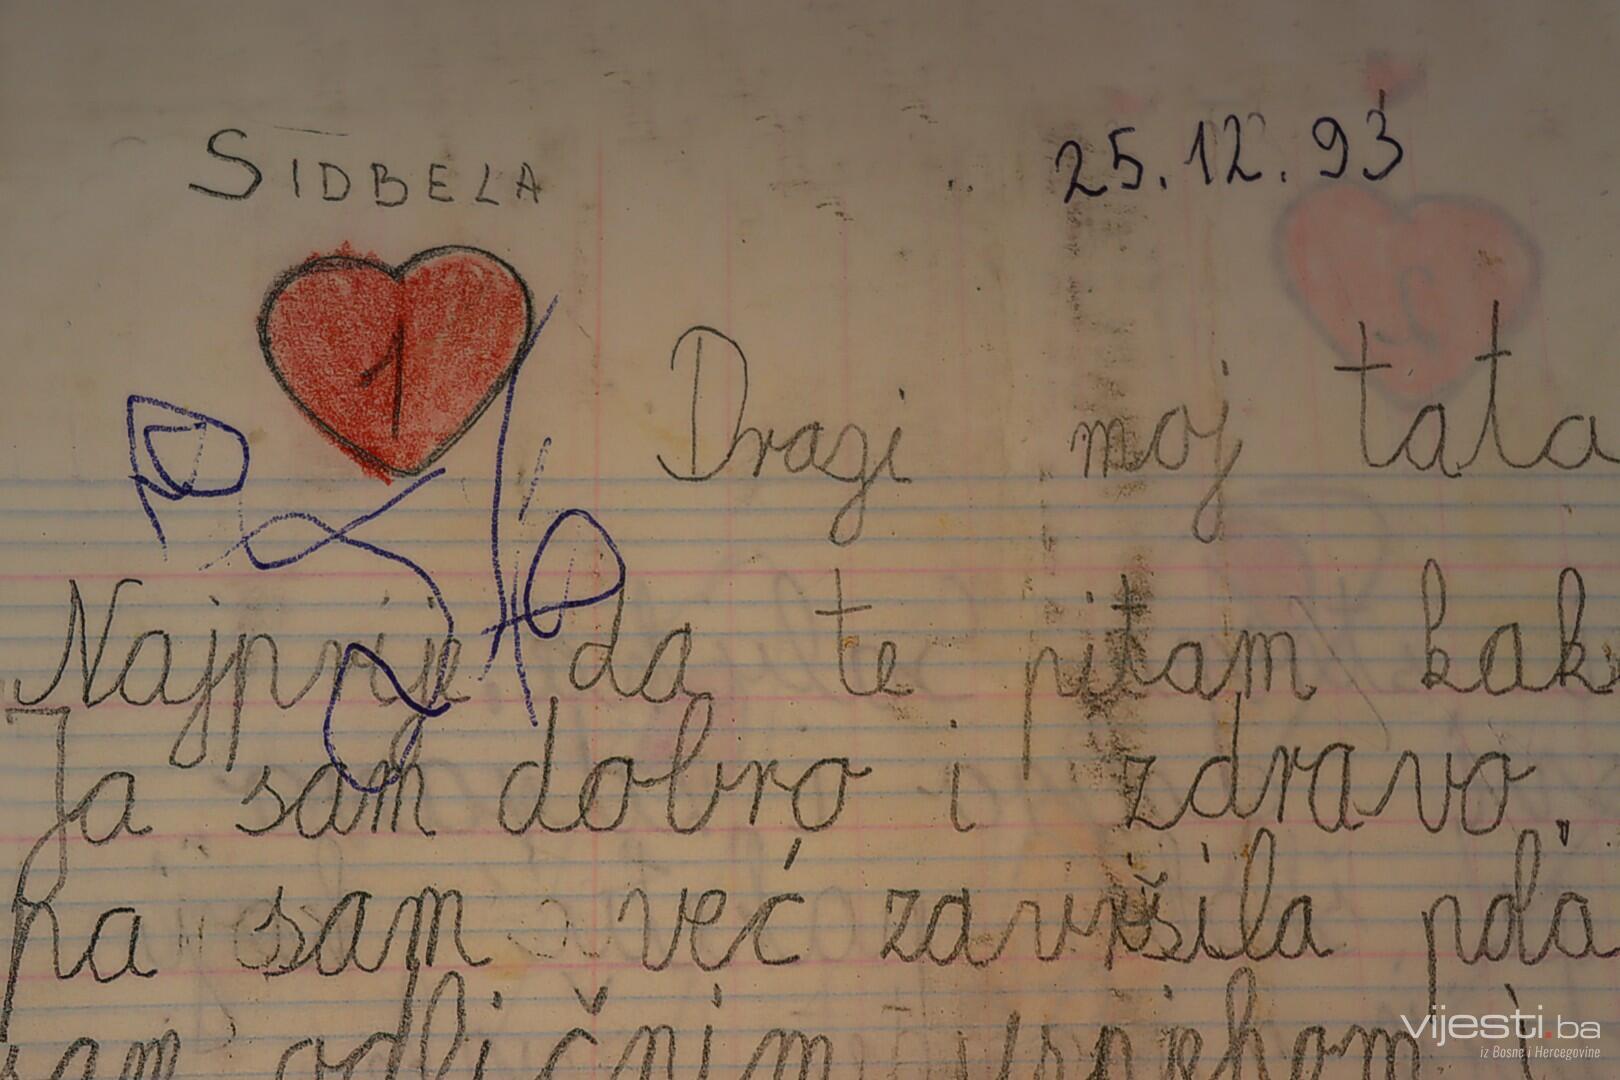 SIDBELA 25.12.93
1
Dragi moj tata
Najprije da te pitam kak
Ja sam dobro i zdravo.
Ja sam već završila pola
sam odličnim uspjehom i
vijesti.ba
iz Bosne i Hercegovine